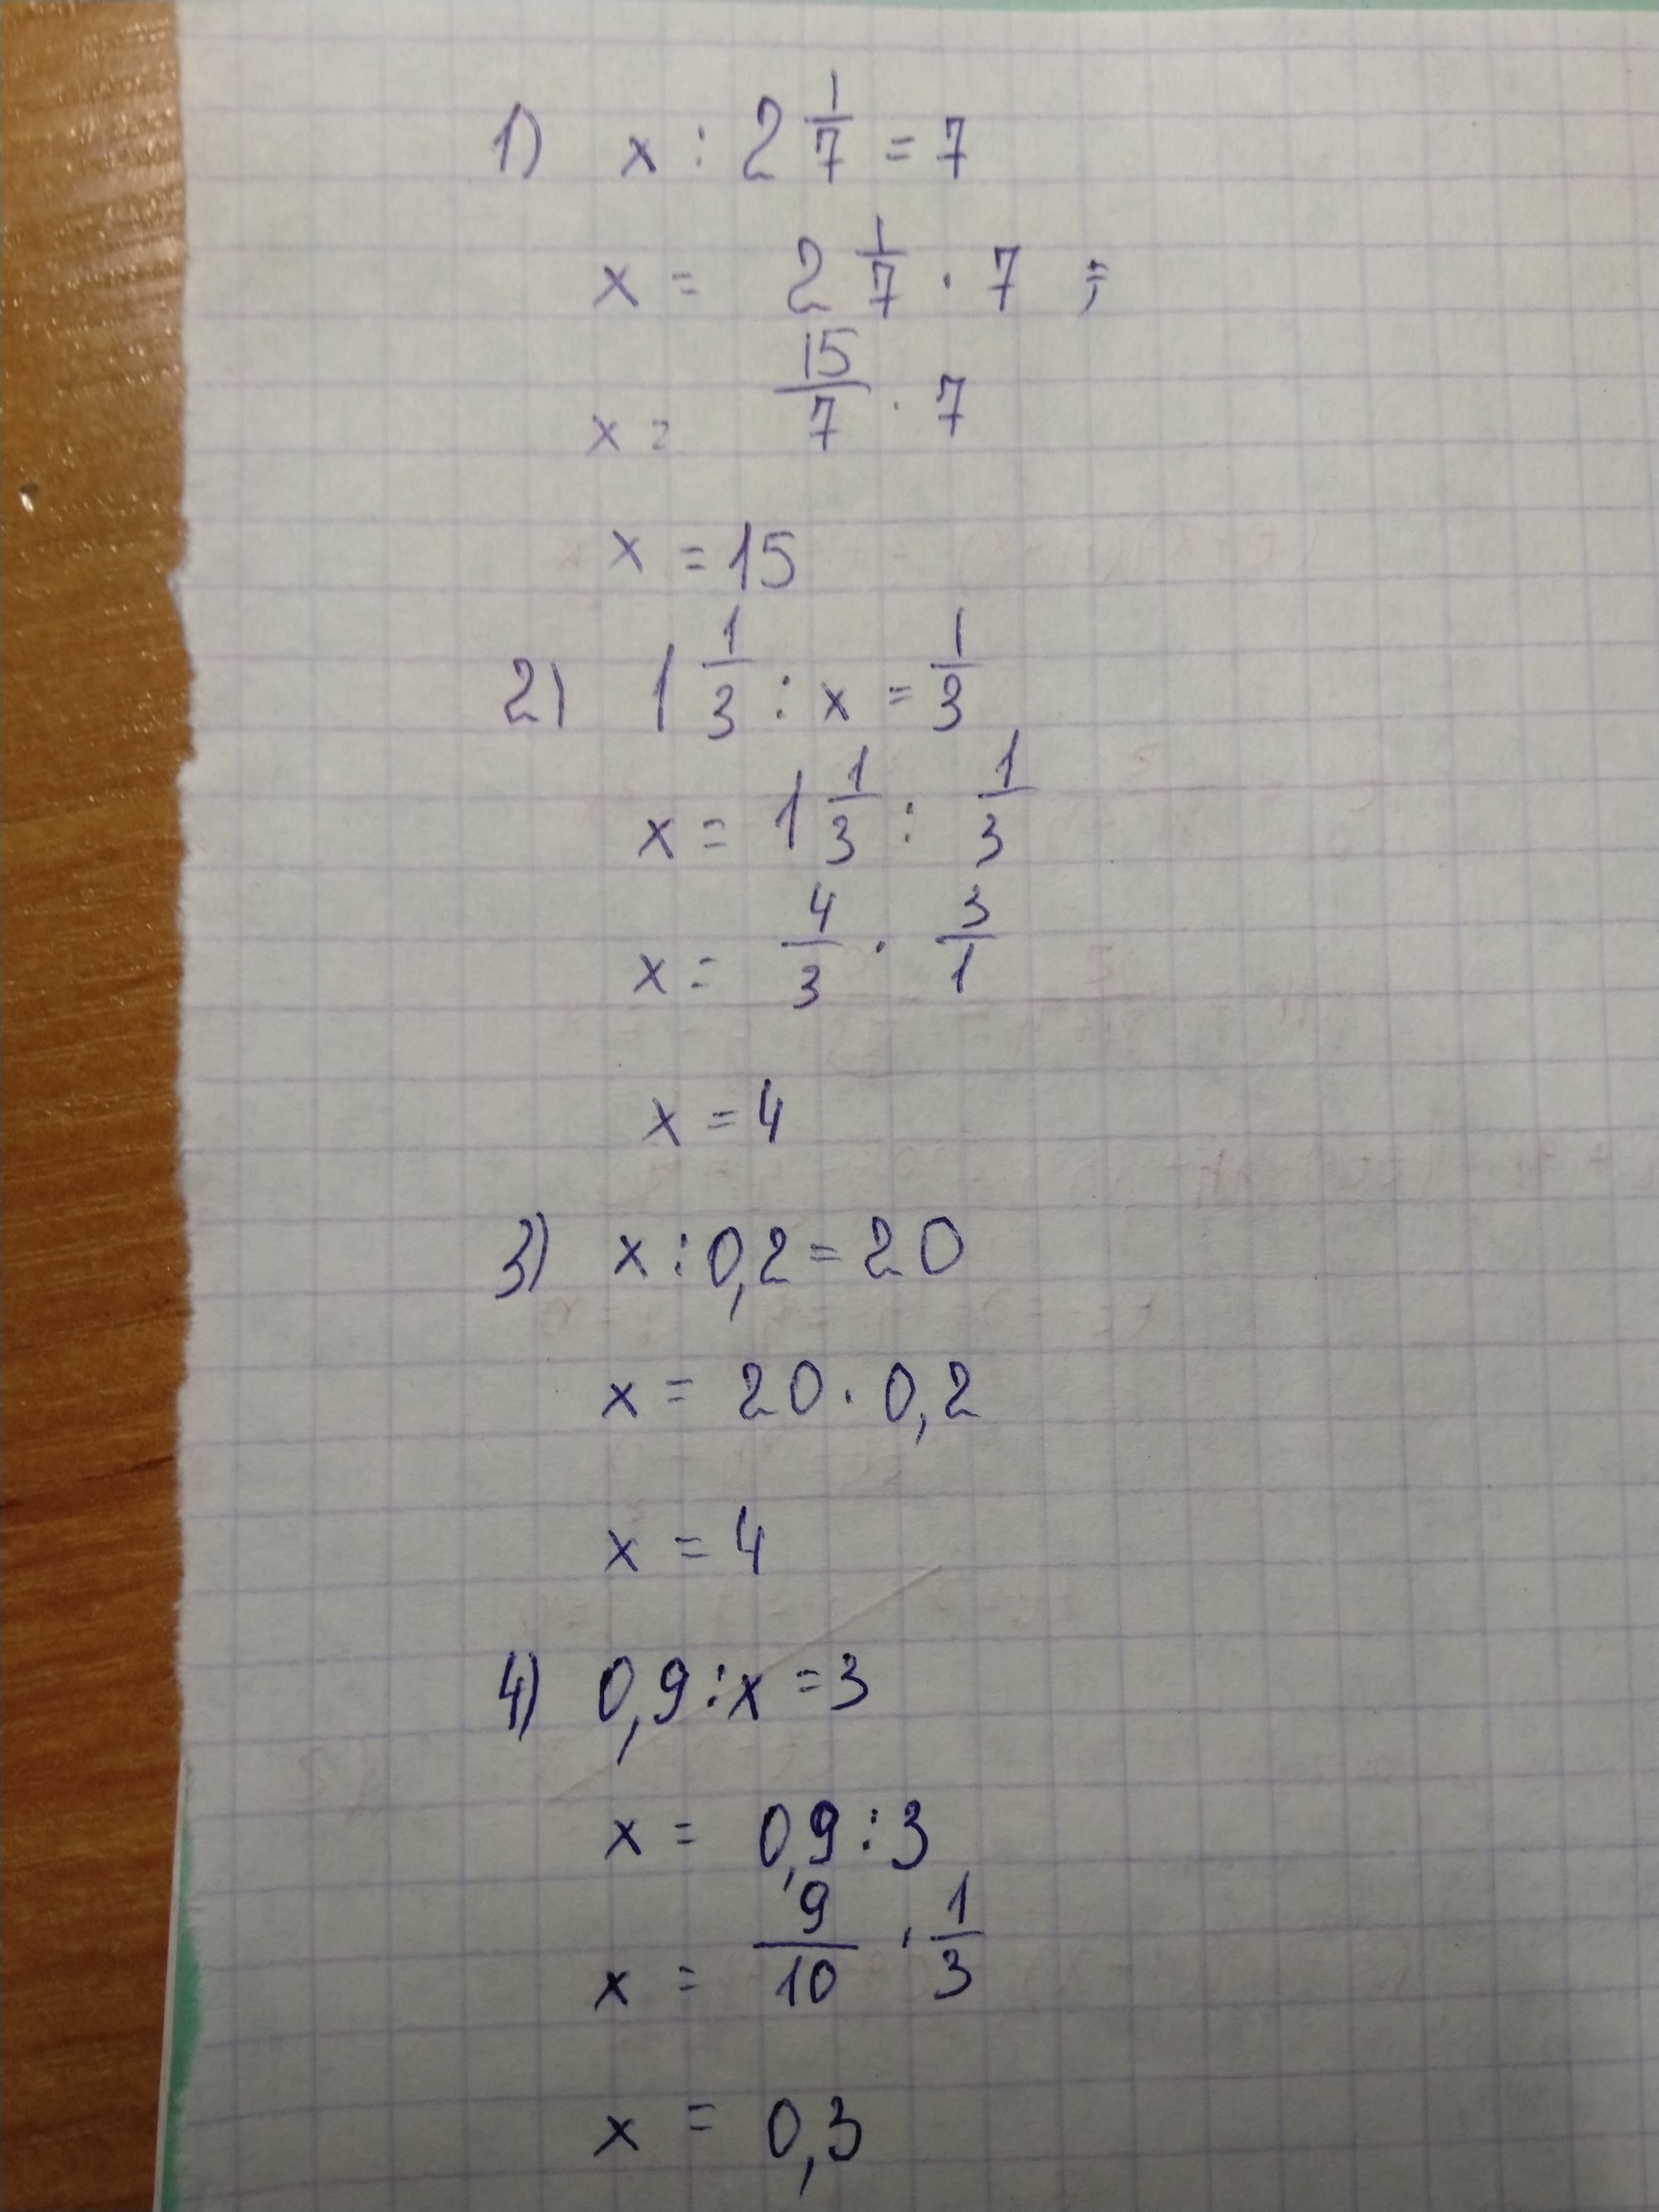 1) x : 2 1/7 = 7
x = 2 1/7 · 7 ;
x = 15/7 · 7
x = 15
2) 1 1/3 : x = 1/3
x = 1 1/3 : 1/3
x = 4/3 · 3/1
x = 4
3) x : 0,2 = 20
x = 20 · 0,2
x = 4
4) 0,9 : x = 3
x = 0,9 : 3
x = 9/10 · 1/3
x = 0,3